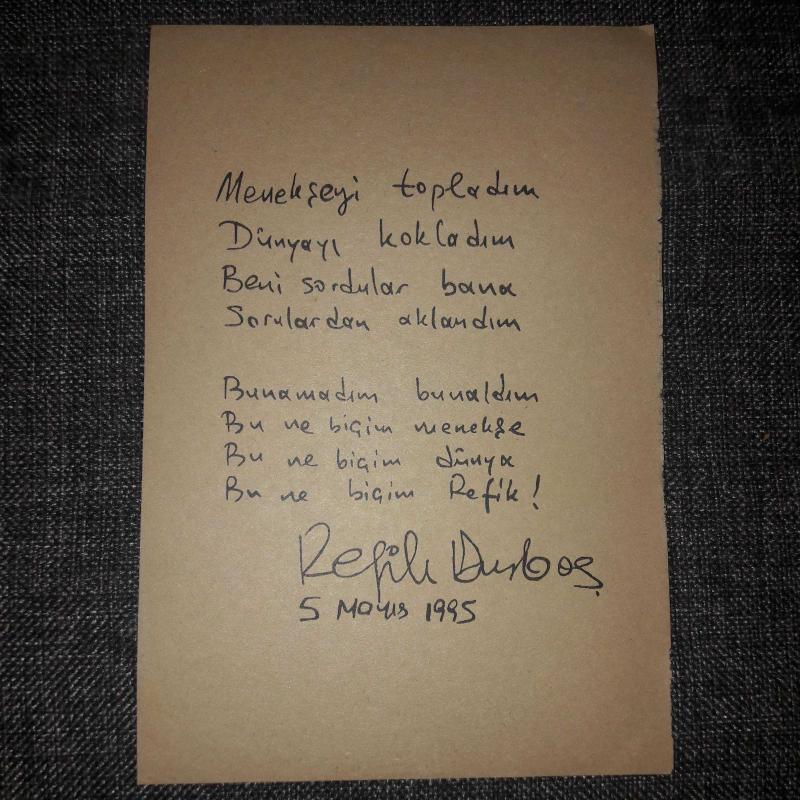 Menekşeyi topladım
Dünyayı kokladım
Beni sordular bana
Sorulardan aklandım
Bunamadım bunaldım
Bu ne biçim menekşe
Bu ne biçim dünya
Bu ne biçim Refik!
Refik Durbaş
5 Mayıs 1995